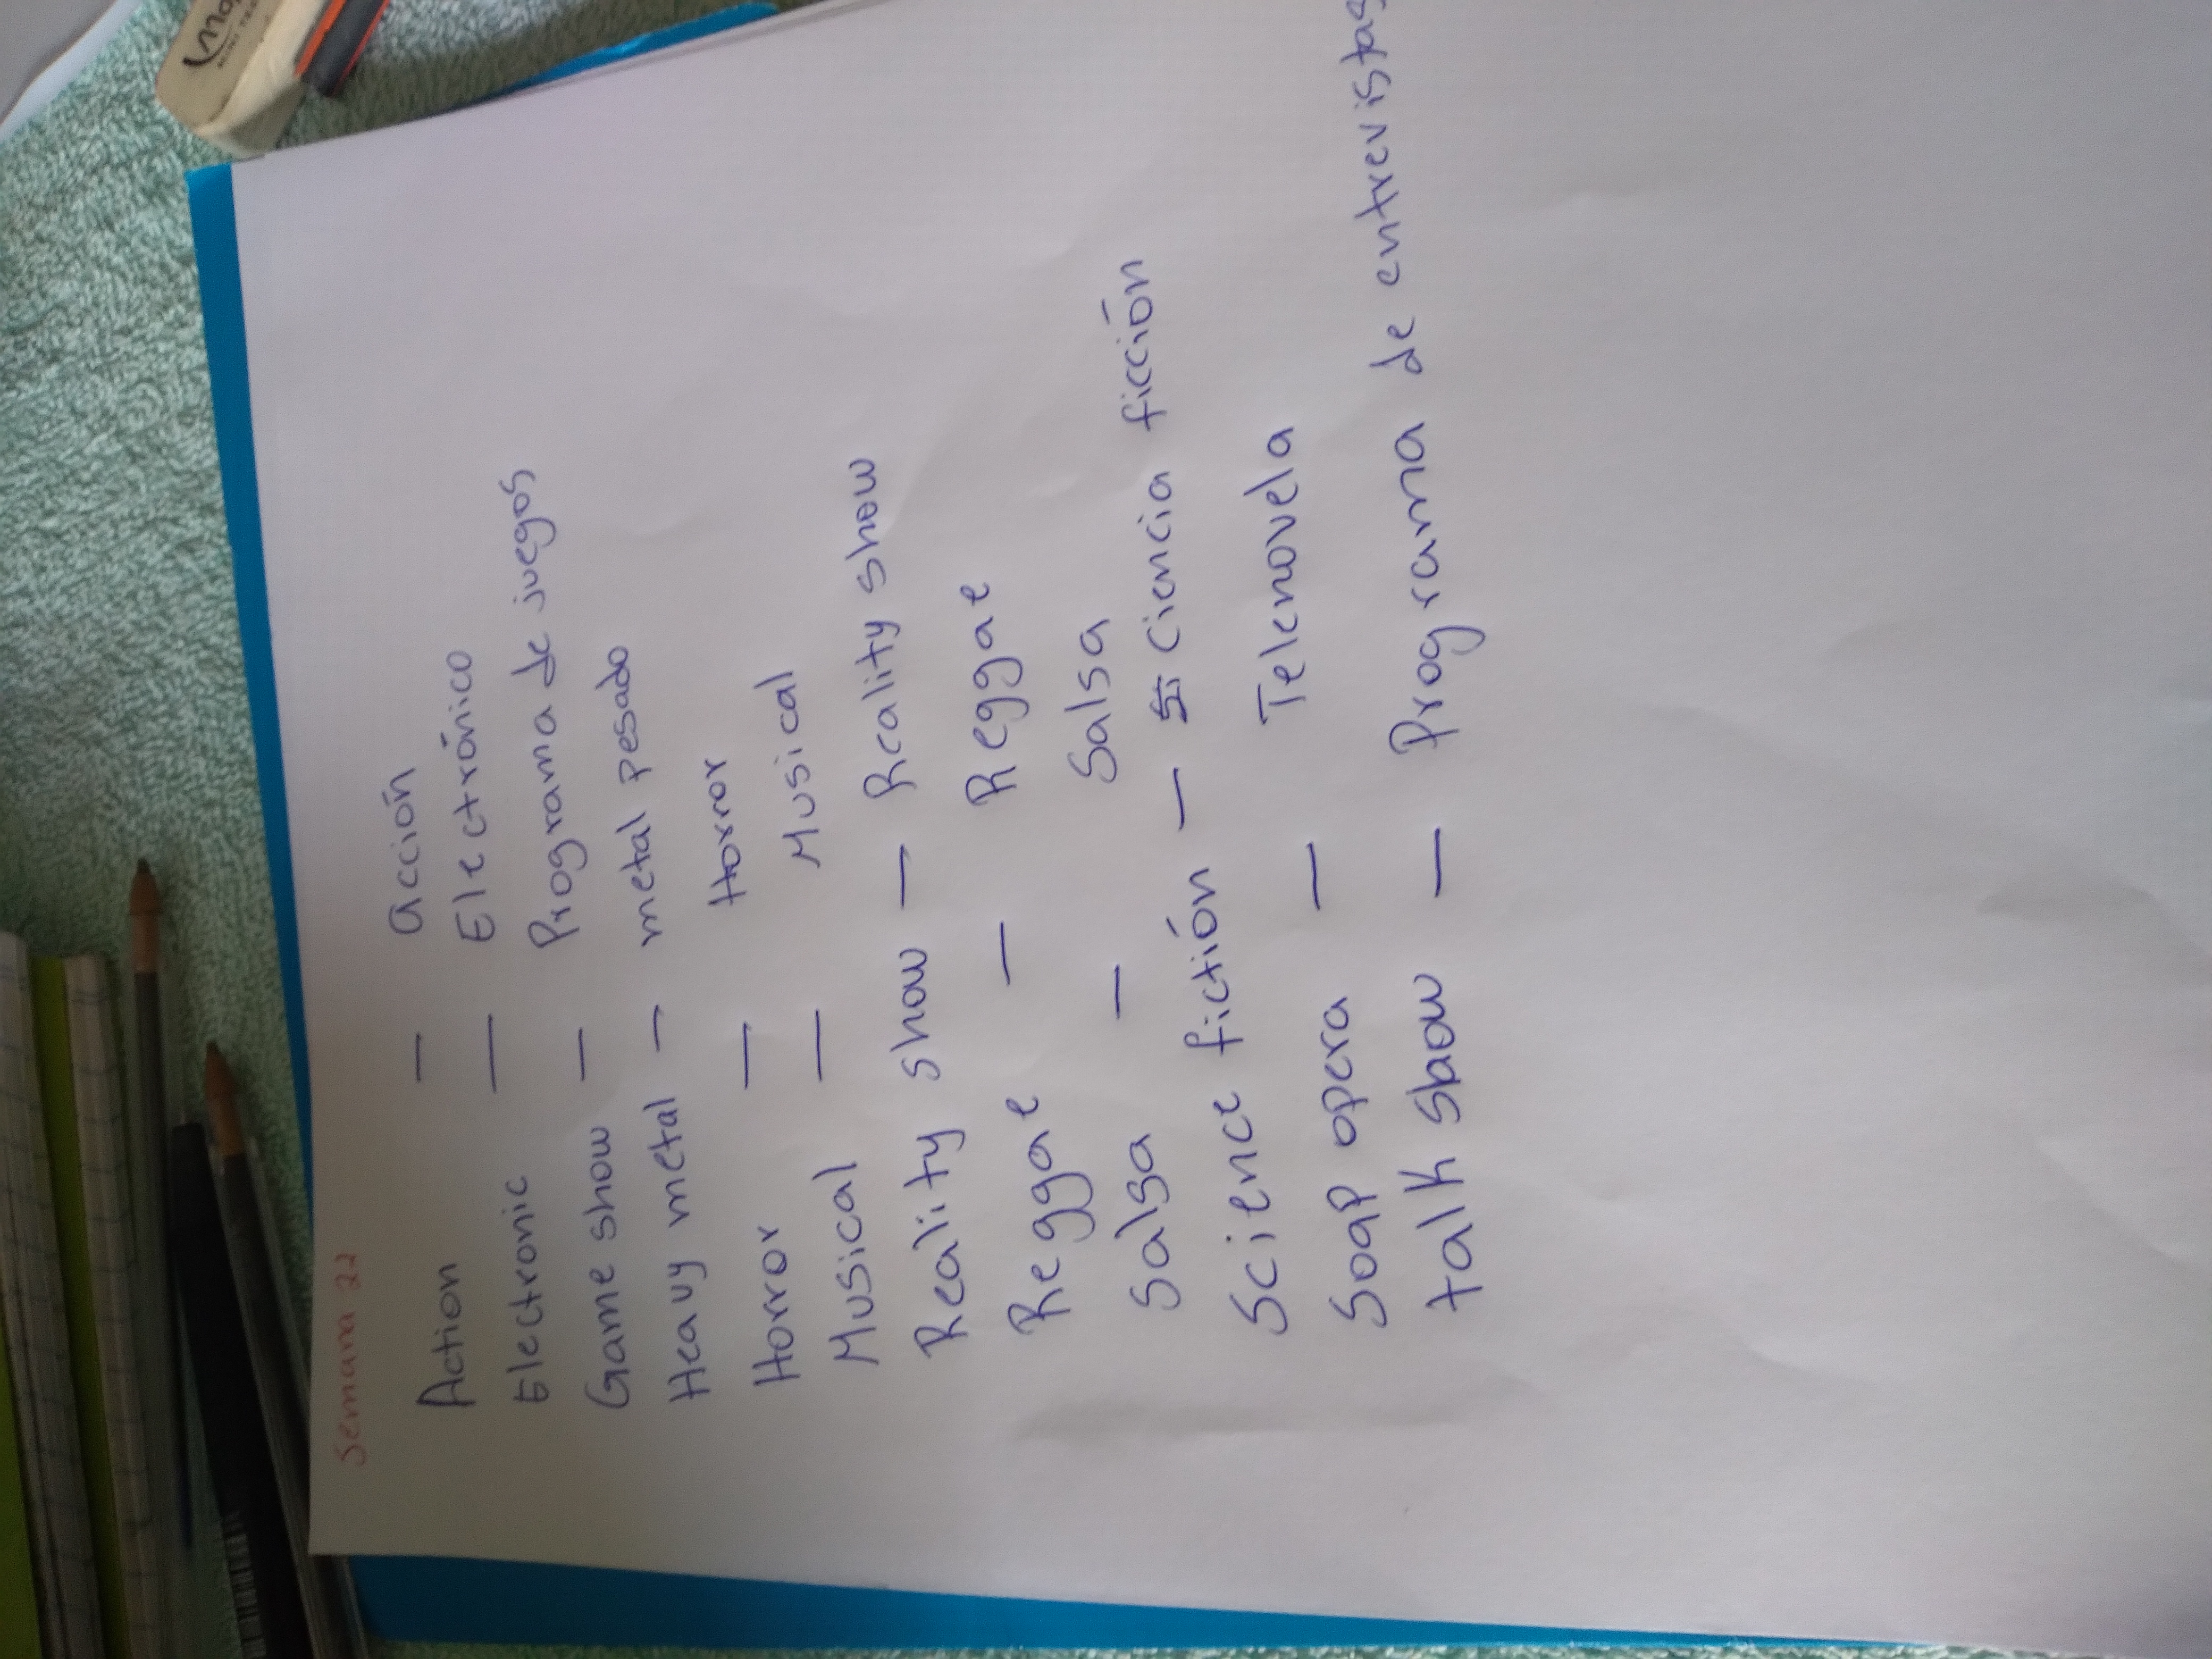 Semana 22
Action — acción
Electronic — Electrónico
Game show — Programa de juegos
Heavy metal — metal pesado
Horror — Horror
Musical — Musical
Reality show — Reality show
Reggae — Reggae
Salsa — Salsa
Science fictión — Ciencia ficción
Soap opera — Telenovela
talk show — Programa de entrevistas